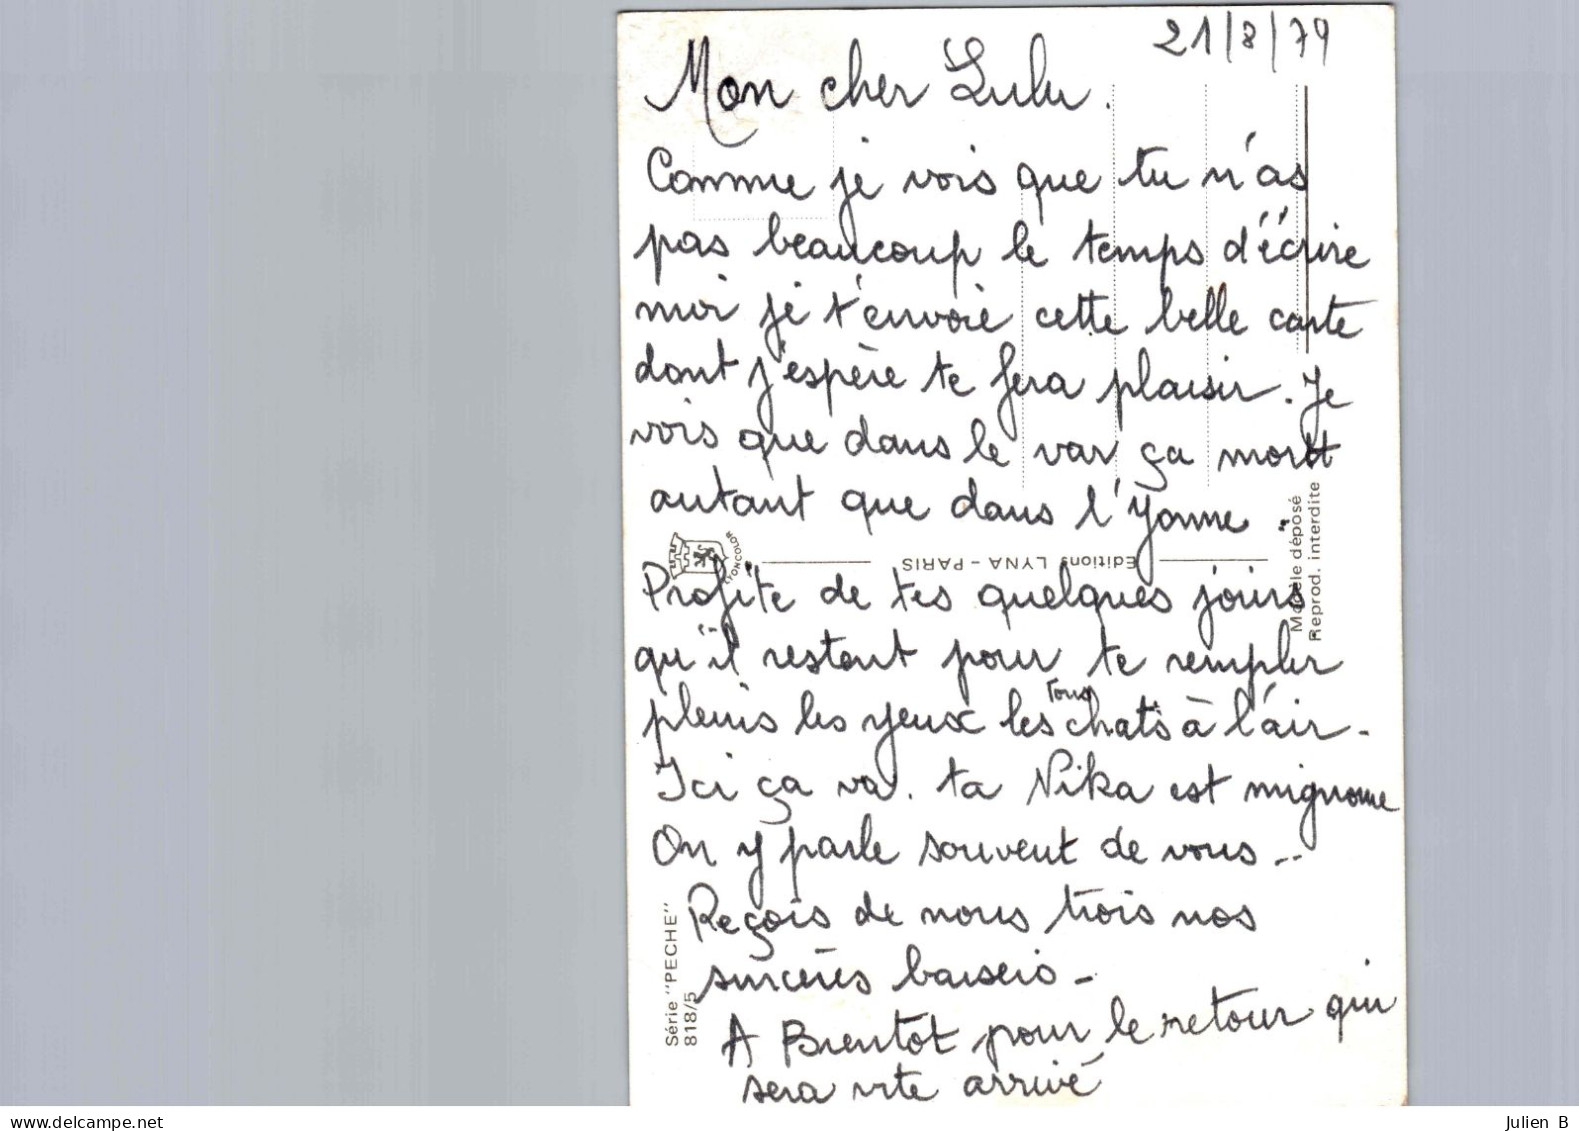 21/8/79
Mon cher Lulu.
Comme je vois que tu n'as
pas beaucoup le temps d'écrire
moi je t'envoie cette belle carte
dont j'espère te fera plaisir. Je
vois que dans le var ça mort
autant que dans l'Yonne.
Profite de tes quelques jours
qu'il restent pour te remplir
pleins les yeux les tous chats à l'air.
Ici ça va. ta Nika est mignonne
On y parle souvent de vous..
Reçois de nous trois nos
sincères baisers -
A Bientot pour le retour qui
sera vite arrivé
Editions LYNA - PARIS
LYONCOLOR
Modèle déposé
Reprod. interdite
Série "PECHE"
818/5
Julien B
www.delcampe.net